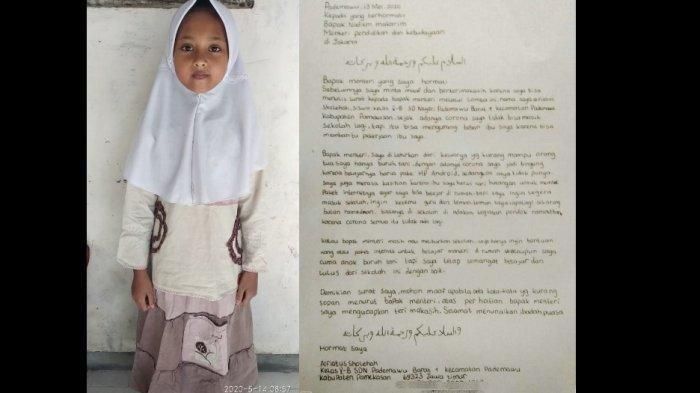 Pademawu, 13 Mei 2020
Kepada yang terhormat
Bapak Nadiem makarim
Menteri pendidikan dan kebudayaan
di Jakarta
السلام عليكم ورحمة الله وبركاته
Bapak menteri yang saya hormati
Sebelumnya saya minta maaf dan berterimakasih karena saya bisa
menulis surat kepada bapak menteri melalui lomba ini. nama saya alfiatus
Sholehah, siswi kelas V-B SD Negeri Pademawu Barat 1 kecamatan Pademawu
Kabupaten Pamekasan. sejak adanya corona saya tidak bisa masuk
sekolah lagi, tapi itu bisa mengurangi beban ibu saya karena bisa
membantu pekerjaan ibu saya.
Bapak menteri, saya di lahirkan dari keluarga yg kurang mampu orang
tua saya hanya buruh tani. dengan adanya corona saya jadi bingung
karena belajarnya harus pake HP Android, sedangkan saya tidak punya.
Saya juga merasa kasihan karena ibu saya harus cari pinjaman untuk membeli
Paket internetnya agar saya bisa belajar di rumah. tapi saya ingin segera
masuk sekolah, ingin ketemu guru dan teman-teman saya apalagi sekarang
bulan ramadhan biasanya di sekolah di adakan kegiatan pondok ramadhan,
karena corona semua itu tidak ada lagi.
kalau bapak menteri masih mau meliburkan sekolah, saya hanya ingin bantuan
uang atau paket internet untuk belajar mandiri di rumah walaupun saya
cuma anak buruh tani tapi saya tetap semangat belajar dan
lulus dari sekolah ini dengan baik.
Demikian surat saya, mohon maaf apabila ada kata-kata yg kurang
sopan menurut bapak menteri. atas perhatian bapak menteri
saya mengucapkan teri makasih. Selamat menunaikan ibadah puasa
والسلام عليكم ورحمة الله وبركاته
Hormat saya
Alfiatus Sholehah
Kelas V-B SDN Pademawu Barat 1 kecamatan Pademawu
Kabupaten Pamekasan 69323 Jawa timur
2020-5-14 08:57